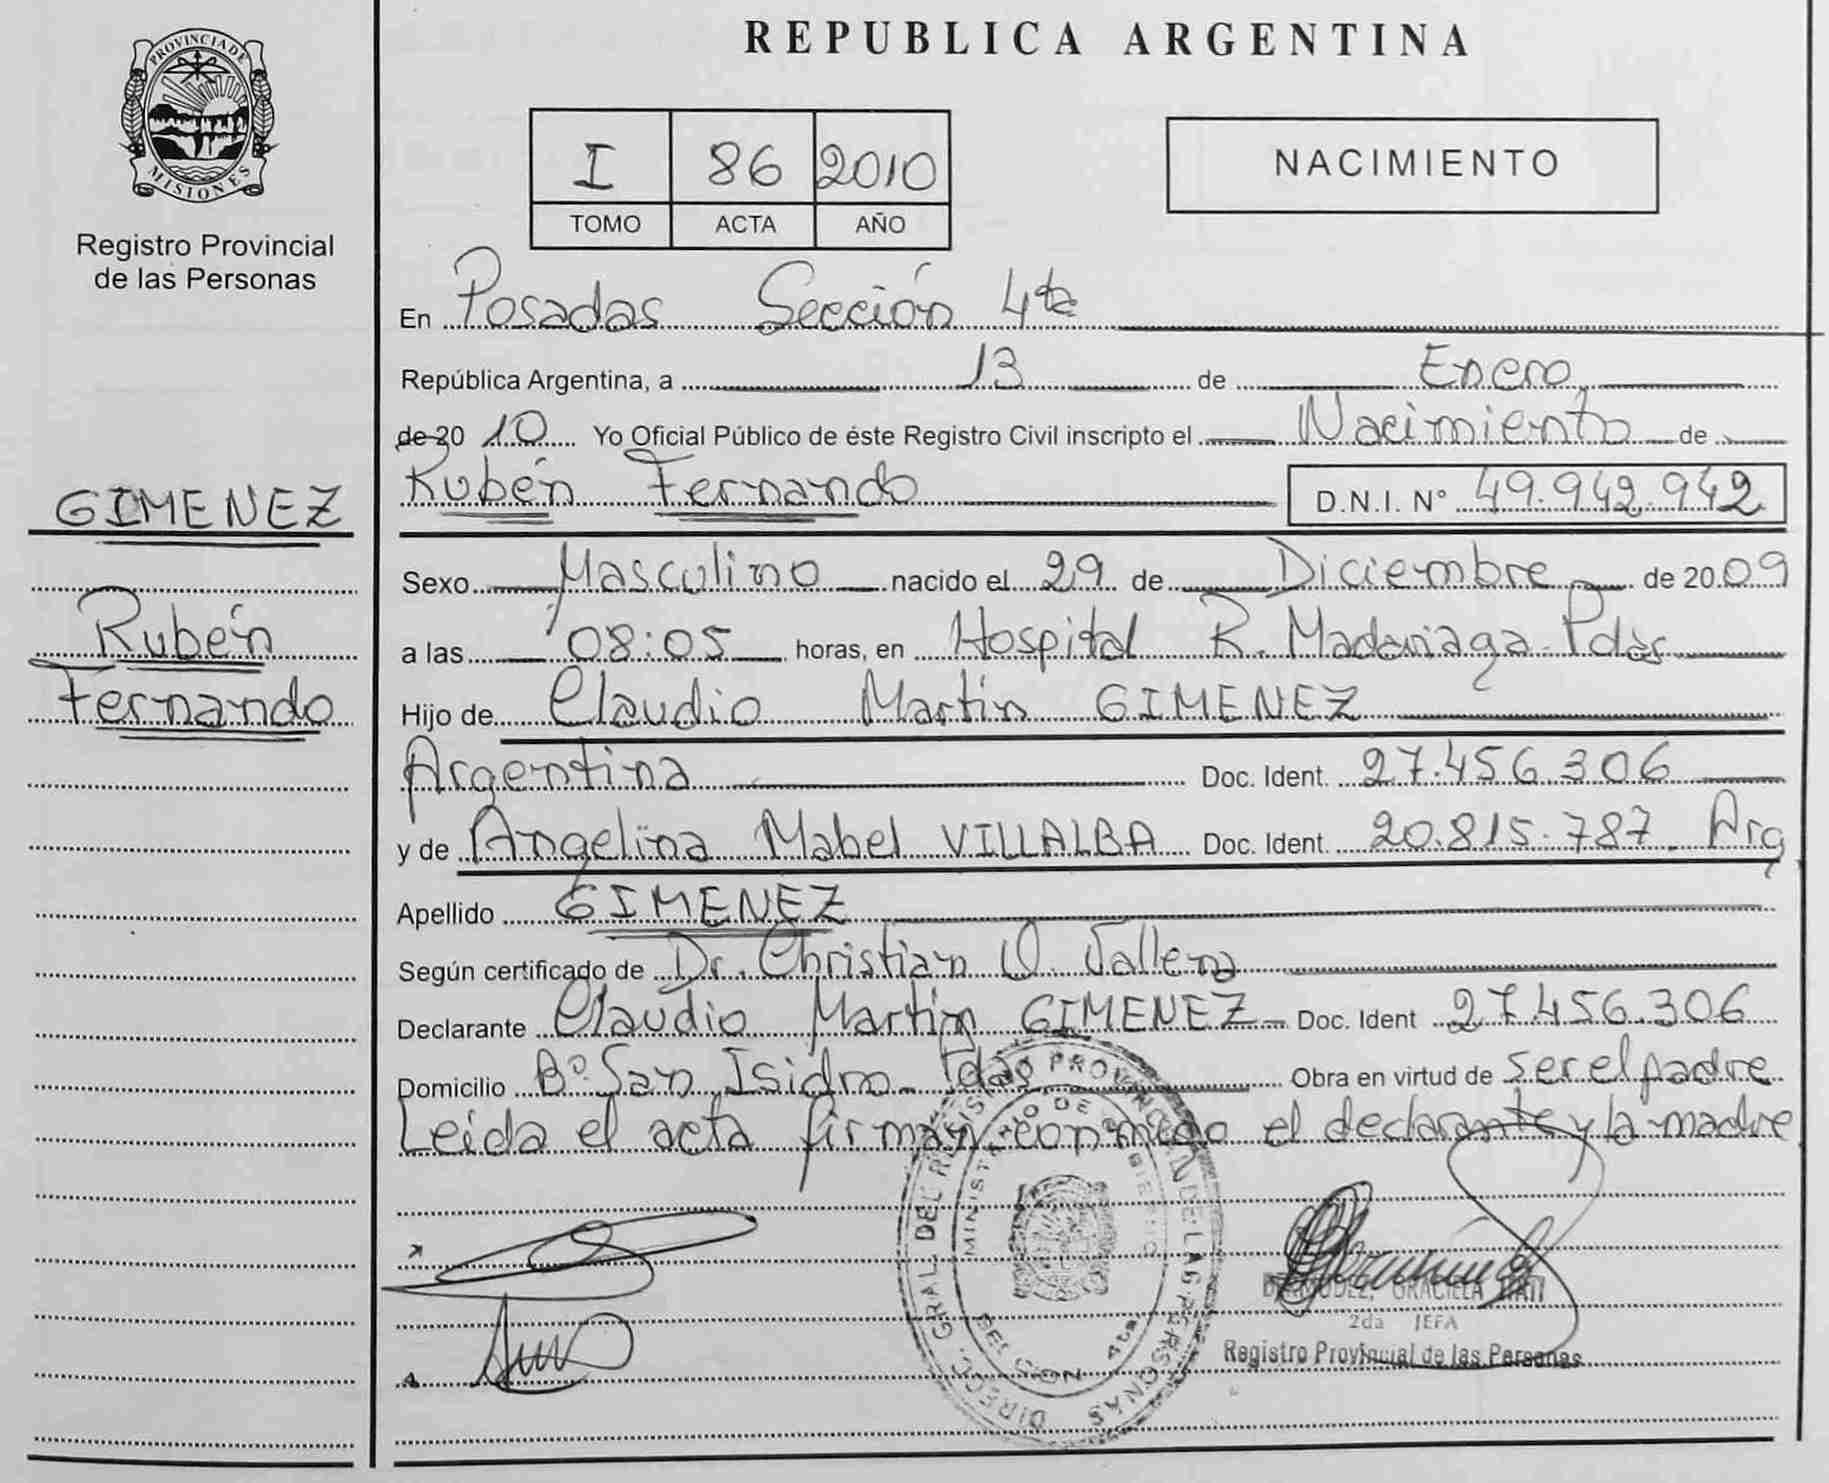 REPUBLICA ARGENTINA
PROVINCIA DE
MISIONES
Registro Provincial
de las Personas
I 86 2010
TOMO ACTA AÑO
NACIMIENTO
En Posadas Sección 4ta
República Argentina, a 13 de Enero
de 20 10 Yo Oficial Público de éste Registro Civil inscripto el Nacimiento de
Rubén Fernando D.N.I. N° 49.942.942
GIMENEZ
Rubén
Fernando
Sexo Masculino nacido el 29 de Diciembre de 20 09
a las 08:05 horas, en Hospital R. Madariaga Pdas
Hijo de Claudio Martin GIMENEZ
Argentina Doc. Ident. 27.456.306
y de Angelina Mabel VILLALBA Doc. Ident. 20.815.787 Arg
Apellido GIMENEZ
Según certificado de Dr. Christian
Declarante Claudio Martin GIMENEZ Doc. Ident 27.456.306
Domicilio B° San Isidro Pdas Obra en virtud de ser el padre
Leída el acta firman conmigo el declarante y la madre
DIRECC. GRAL. DEL REGISTRO PROVINCIAL DE LAS PERSONAS
MINISTERIO DE GOBIERNO
SECCION 4ta
GRACIELA
2da JEFA
Registro Provincial de las Personas